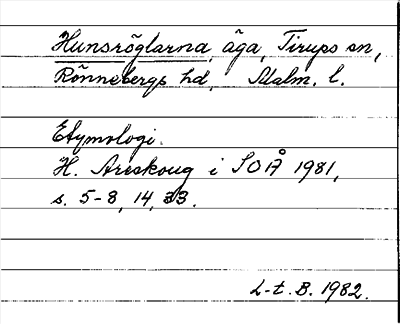 Hunsröglarna, äga, Tirups sn,
Rönnebergs hd, Malm. l.
Etymologi.
H. Areskoug i SOÅ 1981,
s. 5-8, 14, 33.
L-t. B. 1982.